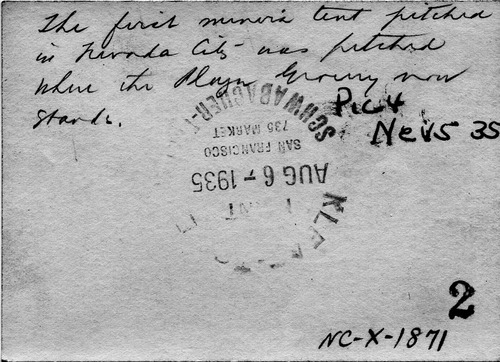 The first miner's tent pitched
in Nevada City was pitched
where the Plaza Grocery now
stands.
Pic 4
Nev5 35
SCHWABACHER-
735 MARKET
SAN FRANCISCO
AUG 6-1935
2
NC-X-1871